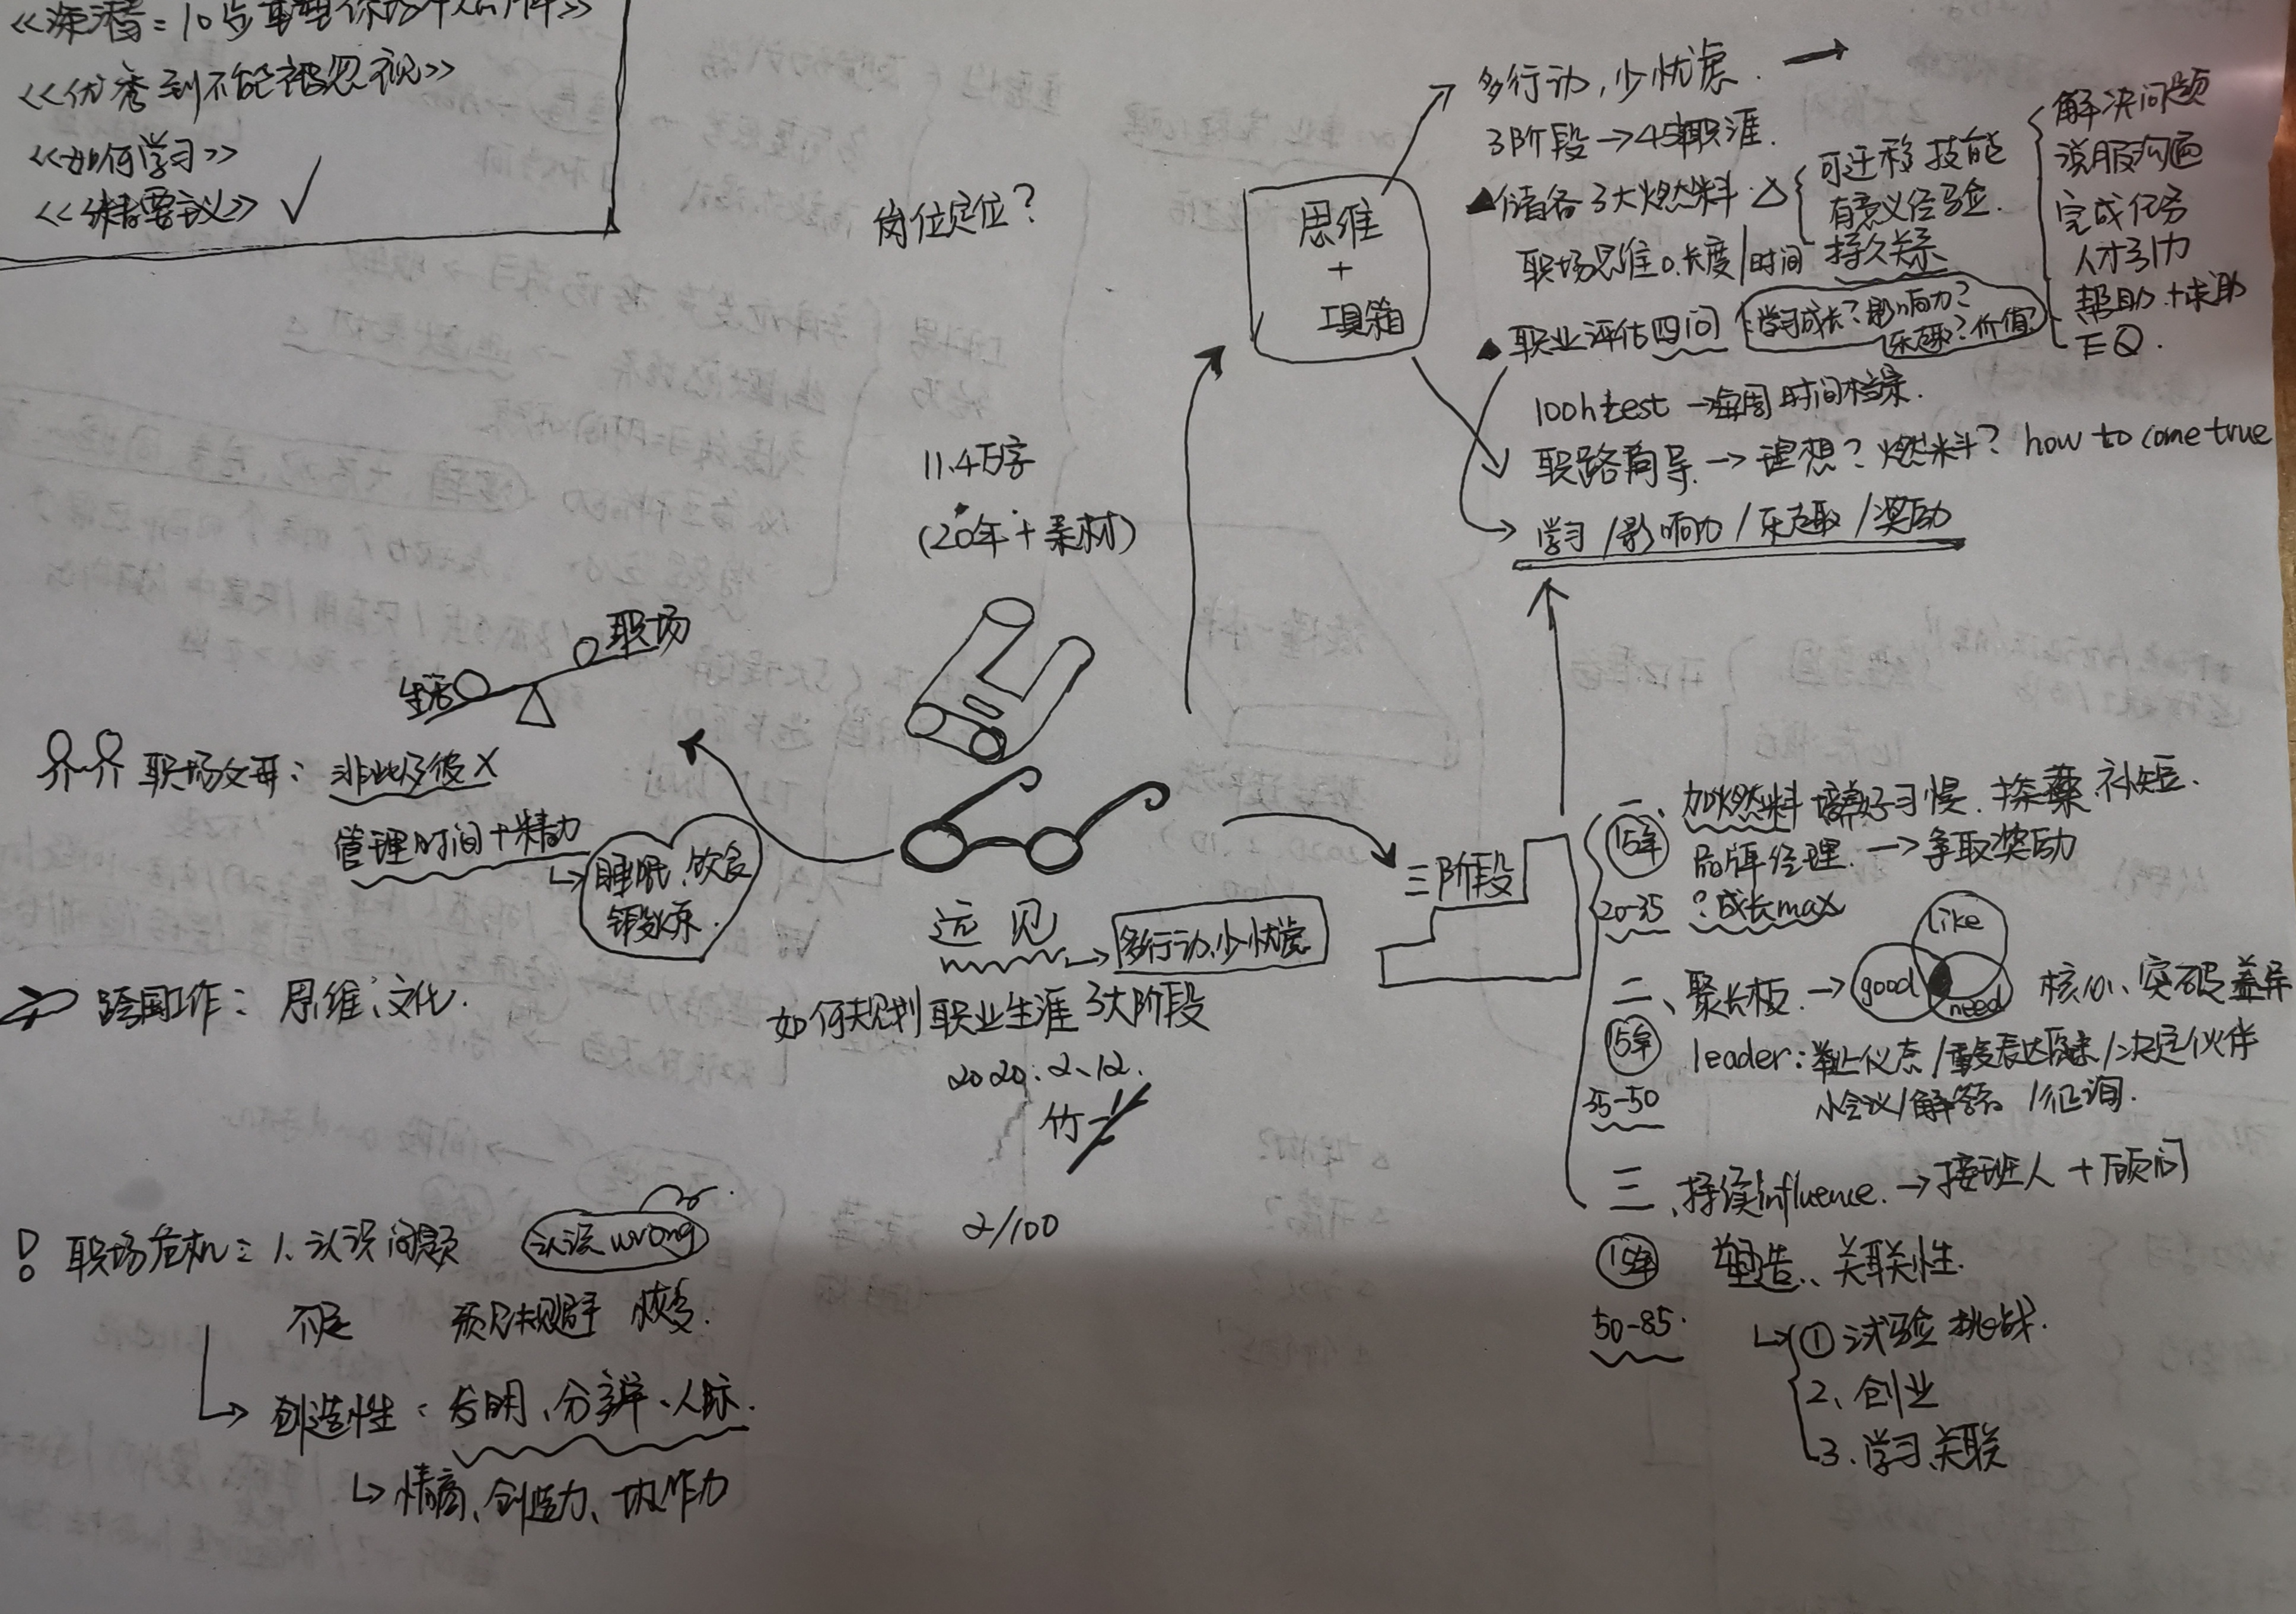 《优秀到不能被忽视》
《如何学习》
《精要主义》
岗位定位？
11.4万字
(20年+素材)
思维
+
工具箱
多行动，少忧虑．
3阶段→45年职涯．
储备3大燃料
可迁移技能
有意义经验．
持久关系
解决问题
说服沟通
完成任务
人才引力
帮助+求助
EQ．
职场思维 长度/时间
职业评估四问
学习成长？影响力？
乐趣？价值？
100h test→每周时间档案．
职路向导→理想？燃料？how to come true
学习/影响力/乐趣/奖励
职场
生活
职场父母：非此及彼 X
管理时间+精力
睡眠、饮食
锻炼
远见
多行动、少忧虑
如何规划职业生涯3大阶段
2020.2.12.
竹
2/100
三阶段
一、加燃料 培养好习惯．探索．补短．
15年
品牌经理．→争取奖励
20-35 ？成长max
二、聚长板．→
like
good
need
核心、突破差异
15年
leader：举止仪态/重复表达/决定伙伴
35-50
小会议/解答/征询．
三、持续influence．→接班人+顾问
15年
塑造．关联性．
50-85．
①试验挑战．
2、创业
3．学习关联
跨国工作：思维、文化．
职场危机：1．认识问题
认识wrong
不足
预见规避 恢复．
创造性：发明、分辨、人际．
情商、创造力、协作力